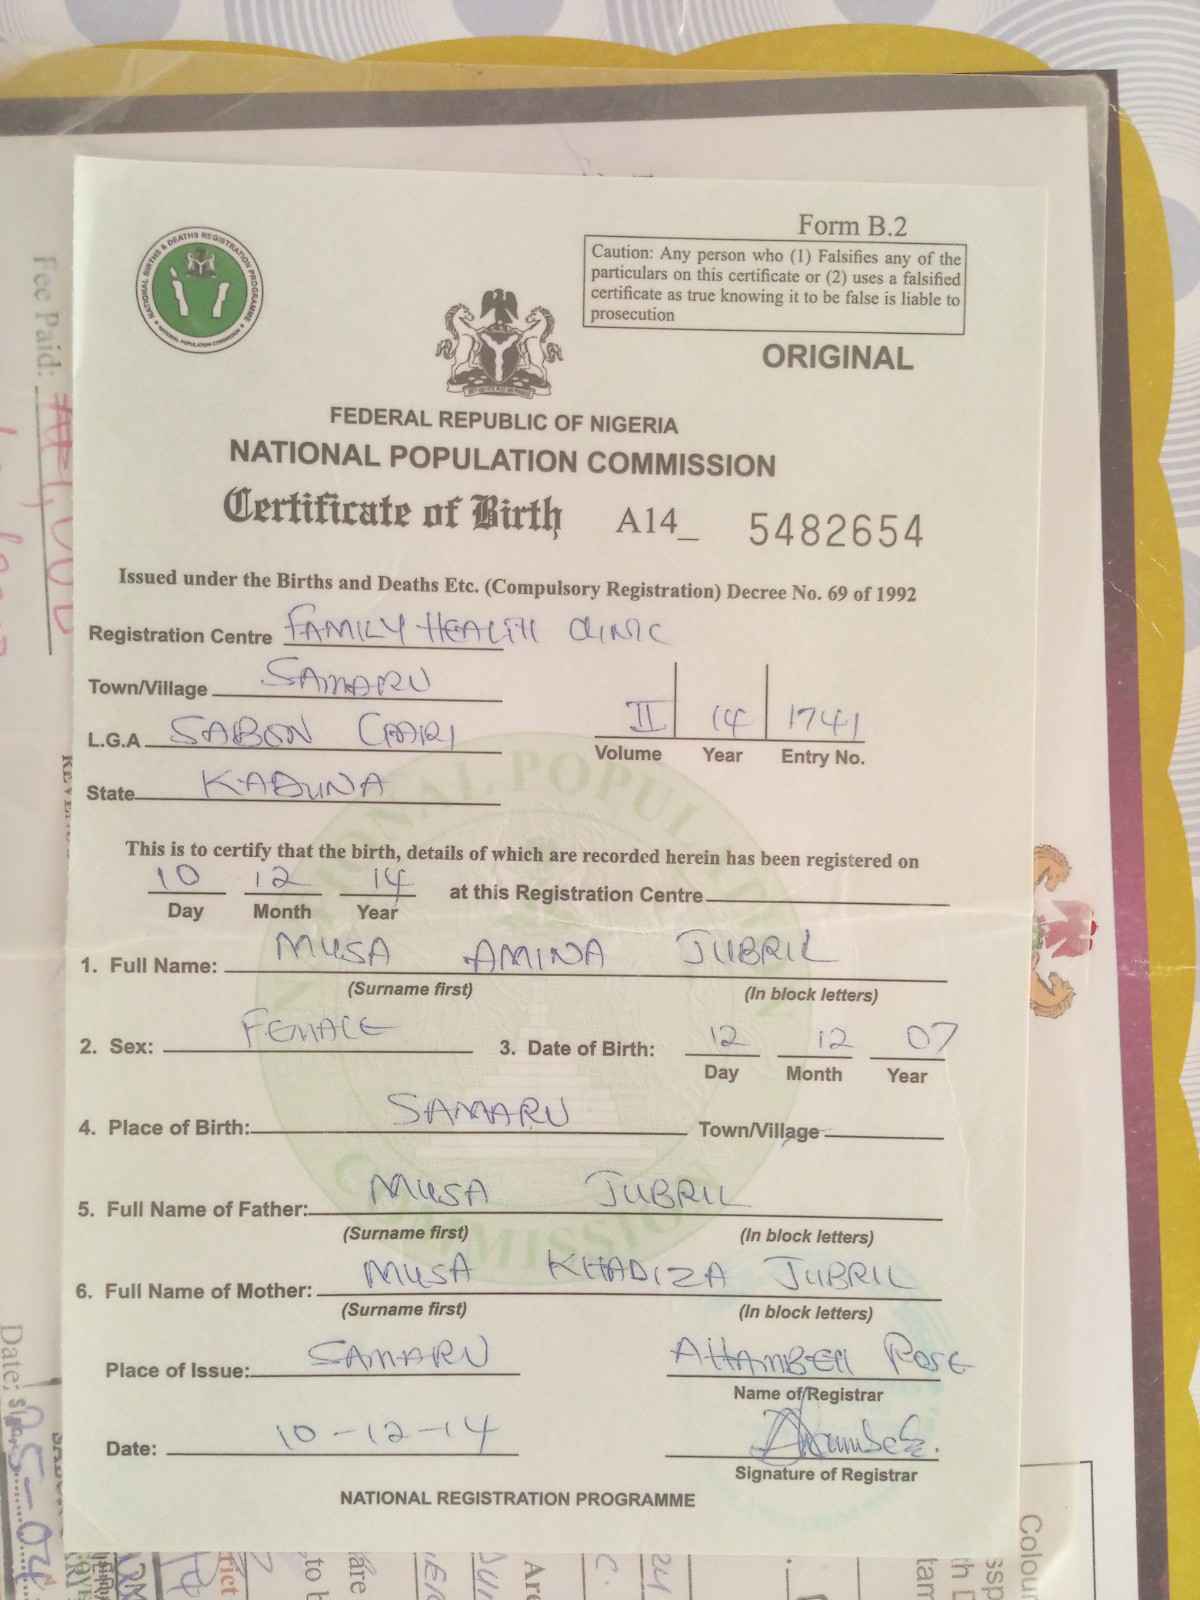 Form B.2
Caution: Any person who (1) Falsifies any of the
particulars on this certificate or (2) uses a falsified
certificate as true knowing it to be false is liable to
prosecution
NATIONAL BIRTHS & DEATHS REGISTRATION PROGRAMME
NATIONAL POPULATION COMMISSION
ORIGINAL
FEDERAL REPUBLIC OF NIGERIA
NATIONAL POPULATION COMMISSION
Certificate of Birth A14_ 5482654
Issued under the Births and Deaths Etc. (Compulsory Registration) Decree No. 69 of 1992
Registration Centre FAMILY HEALTH CLINIC
Town/Village SAMARU
L.G.A SABON GARI
State KADUNA
II 14 1741
Volume Year Entry No.
This is to certify that the birth, details of which are recorded herein has been registered on
10 12 14 at this Registration Centre
Day Month Year
1. Full Name: MUSA AMINA JUBRIL
(Surname first) (In block letters)
2. Sex: FEMALE 3. Date of Birth: 12 12 07
Day Month Year
4. Place of Birth: SAMARU Town/Village
5. Full Name of Father: MUSA JUBRIL
(Surname first) (In block letters)
6. Full Name of Mother: MUSA KHADIZA JUBRIL
(Surname first) (In block letters)
Place of Issue: SAMARU
ROSE
Name of Registrar
Date: 10-12-14
Signature of Registrar
NATIONAL REGISTRATION PROGRAMME
NATIONAL POPULATION COMMISSION
Fee Paid:
Date: